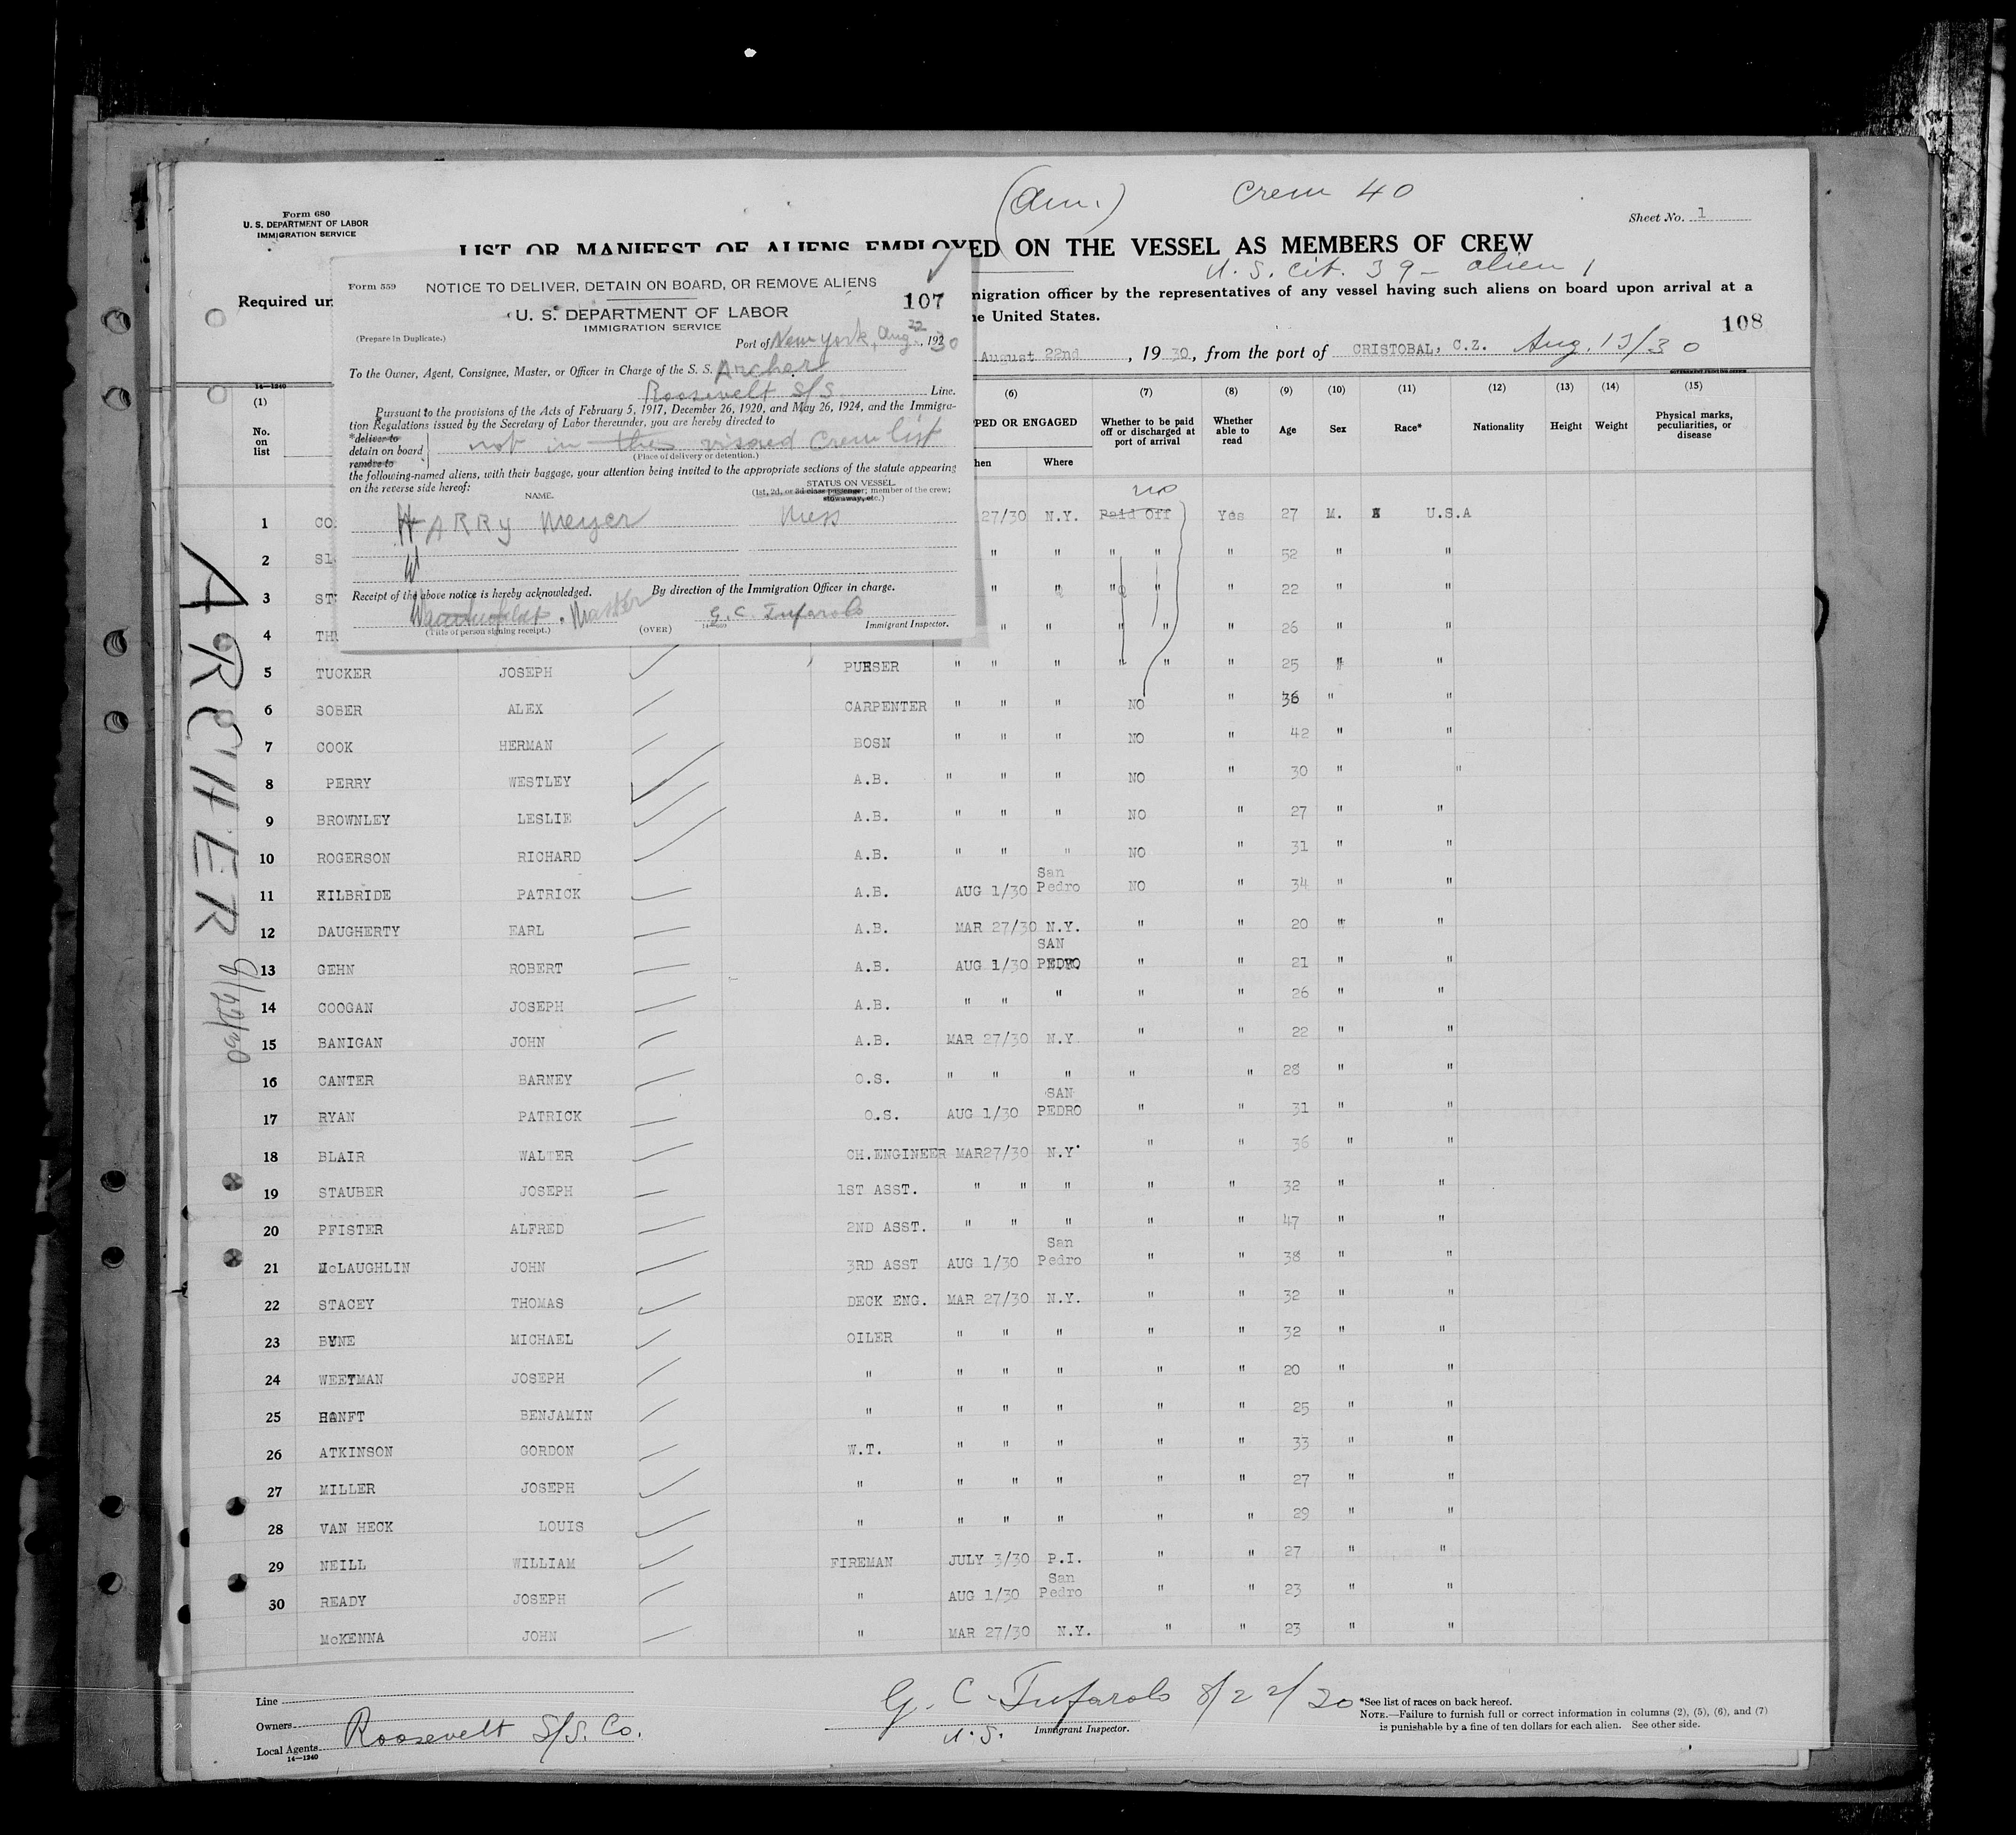 (Am.) Crew 40
Form 680
U. S. DEPARTMENT OF LABOR
IMMIGRATION SERVICE
Sheet No. 1
LIST OR MANIFEST OF ALIENS EMPLOYED ON THE VESSEL AS MEMBERS OF CREW
U.S. cit. 39 - alien 1
Required un
migration officer by the representatives of any vessel having such aliens on board upon arrival at a
e United States.
108
August 22nd, 1930, from the port of CRISTOBAL, C.Z. Aug. 13/30
Form 559
NOTICE TO DELIVER, DETAIN ON BOARD, OR REMOVE ALIENS
107
U. S. DEPARTMENT OF LABOR
IMMIGRATION SERVICE
(Prepare in Duplicate.)
Port of New York, Aug. 22, 1930
To the Owner, Agent, Consignee, Master, or Officer in Charge of the S. S. Archer
Roosevelt S/S. Line.
Pursuant to the provisions of the Acts of February 5, 1917, December 26, 1920, and May 26, 1924, and the Immigra-
tion Regulations issued by the Secretary of Labor thereunder, you are hereby directed to
*deliver to
detain on board not in the visaed crew list
remove to
(Place of delivery or detention.)
the following-named aliens, with their baggage, your attention being invited to the appropriate sections of the statute appearing
on the reverse side hereof:
NAME. STATUS ON VESSEL
(1st, 2d, or 3d class passenger; member of the crew;
stowaway, etc.)
HARRY Meyer Mess
Receipt of the above notice is hereby acknowledged. By direction of the Immigration Officer in charge.
Master G. C. Tufarolo
(Title of person signing receipt.) (OVER) Immigrant Inspector.
14-1240
(1) (6) (7) (8) (9) (10) (11) (12) (13) (14) (15)
No. on list PED OR ENGAGED Whether to be paid off or discharged at port of arrival Whether able to read Age Sex Race* Nationality Height Weight Physical marks, peculiarities, or disease
hen Where
no
1 CO 27/30 N.Y. Paid Off Yes 27 M. U.S.A
2 SL " " " " " 52 " "
3 ST " " " " " 22 " "
4 TH " " " " " 26 " "
5 TUCKER JOSEPH PURSER " " " " " " 25 " "
6 SOBER ALEX CARPENTER " " " NO " 36 " "
7 COOK HERMAN BOSN " " " NO " 42 " "
8 PERRY WESTLEY A.B. " " " NO " 30 " "
9 BROWNLEY LESLIE A.B. " " " NO " 27 " "
10 ROGERSON RICHARD A.B. " " " NO " 31 " "
11 KILBRIDE PATRICK A.B. AUG 1/30 San Pedro NO " 34 " "
12 DAUGHERTY EARL A.B. MAR 27/30 N.Y. " " 20 " "
13 GEHN ROBERT A.B. AUG 1/30 SAN PEDRO " " 21 " "
14 COOGAN JOSEPH A.B. " " " " " 26 " "
15 BANIGAN JOHN A.B. MAR 27/30 N.Y. " " 22 " "
16 CANTER BARNEY O.S. " " " " " 28 " "
17 RYAN PATRICK O.S. AUG 1/30 SAN PEDRO " " 31 " "
18 BLAIR WALTER CH.ENGINEER MAR27/30 N.Y. " " 36 " "
19 STAUBER JOSEPH 1ST ASST. " " " " " 32 " "
20 PFISTER ALFRED 2ND ASST. " " " " " 47 " "
21 McLAUGHLIN JOHN 3RD ASST AUG 1/30 San Pedro " " 38 " "
22 STACEY THOMAS DECK ENG. MAR 27/30 N.Y. " " 32 " "
23 BYNE MICHAEL OILER " " " " " 32 " "
24 WEETMAN JOSEPH " " " " " " 20 " "
25 HANFT BENJAMIN " " " " " " 25 " "
26 ATKINSON GORDON W.T. " " " " " 33 " "
27 MILLER JOSEPH " " " " " " 27 " "
28 VAN HECK LOUIS " " " " " " 29 " "
29 NEILL WILLIAM FIREMAN JULY 3/30 P.I. " " 27 " "
30 READY JOSEPH " AUG 1/30 San Pedro " " 23 " "
McKENNA JOHN " MAR 27/30 N.Y. " " 23 " "
ARCHER 8/22/30
Line
Owners
Local Agents Roosevelt S/S. Co.
14-1240
G. C. Tufarolo 8/22/30
U.S. Immigrant Inspector.
*See list of races on back hereof.
NOTE.—Failure to furnish full or correct information in columns (2), (5), (6), and (7)
is punishable by a fine of ten dollars for each alien. See other side.